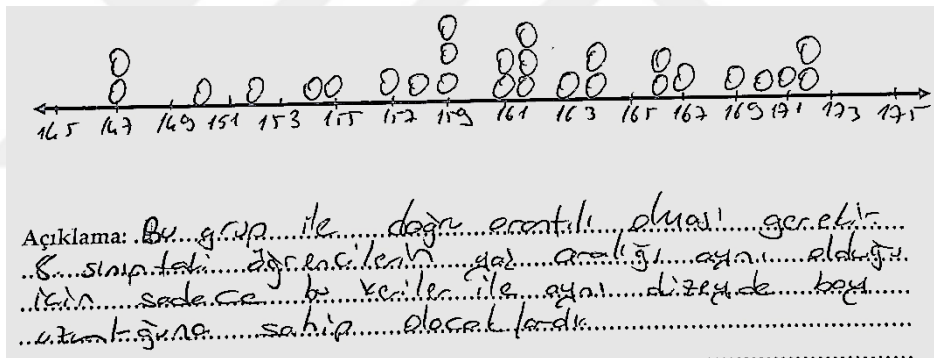 145 147 149 151 153 155 157 159 161 163 165 167 169 171 173 175
Açıklama: Bu grup ile doğru orantılı olması gerekir.
8. sınıftaki öğrencilerin yaş aralığı aynı olduğu
için sadece bu veriler ile aynı düzeyde boy
uzunluğuna sahip olacaklardır.